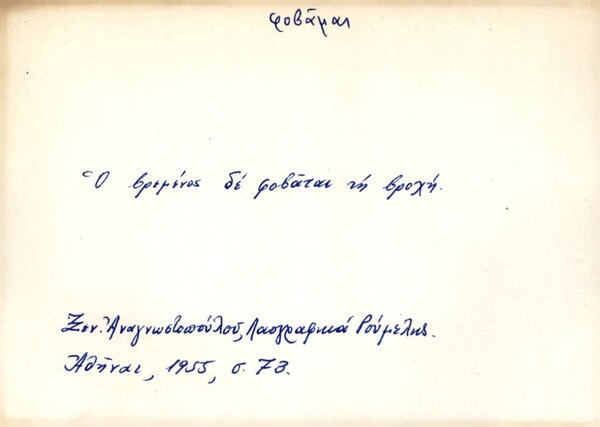 φοβᾶμαι
Ὁ βρεμένος δέ φοβᾶται τή βροχή.
Ξεν. Ἀναγνωστοπούλου, Λαογραφικά Ρούμελης.
Ἀθῆναι, 1955, σ. 73.